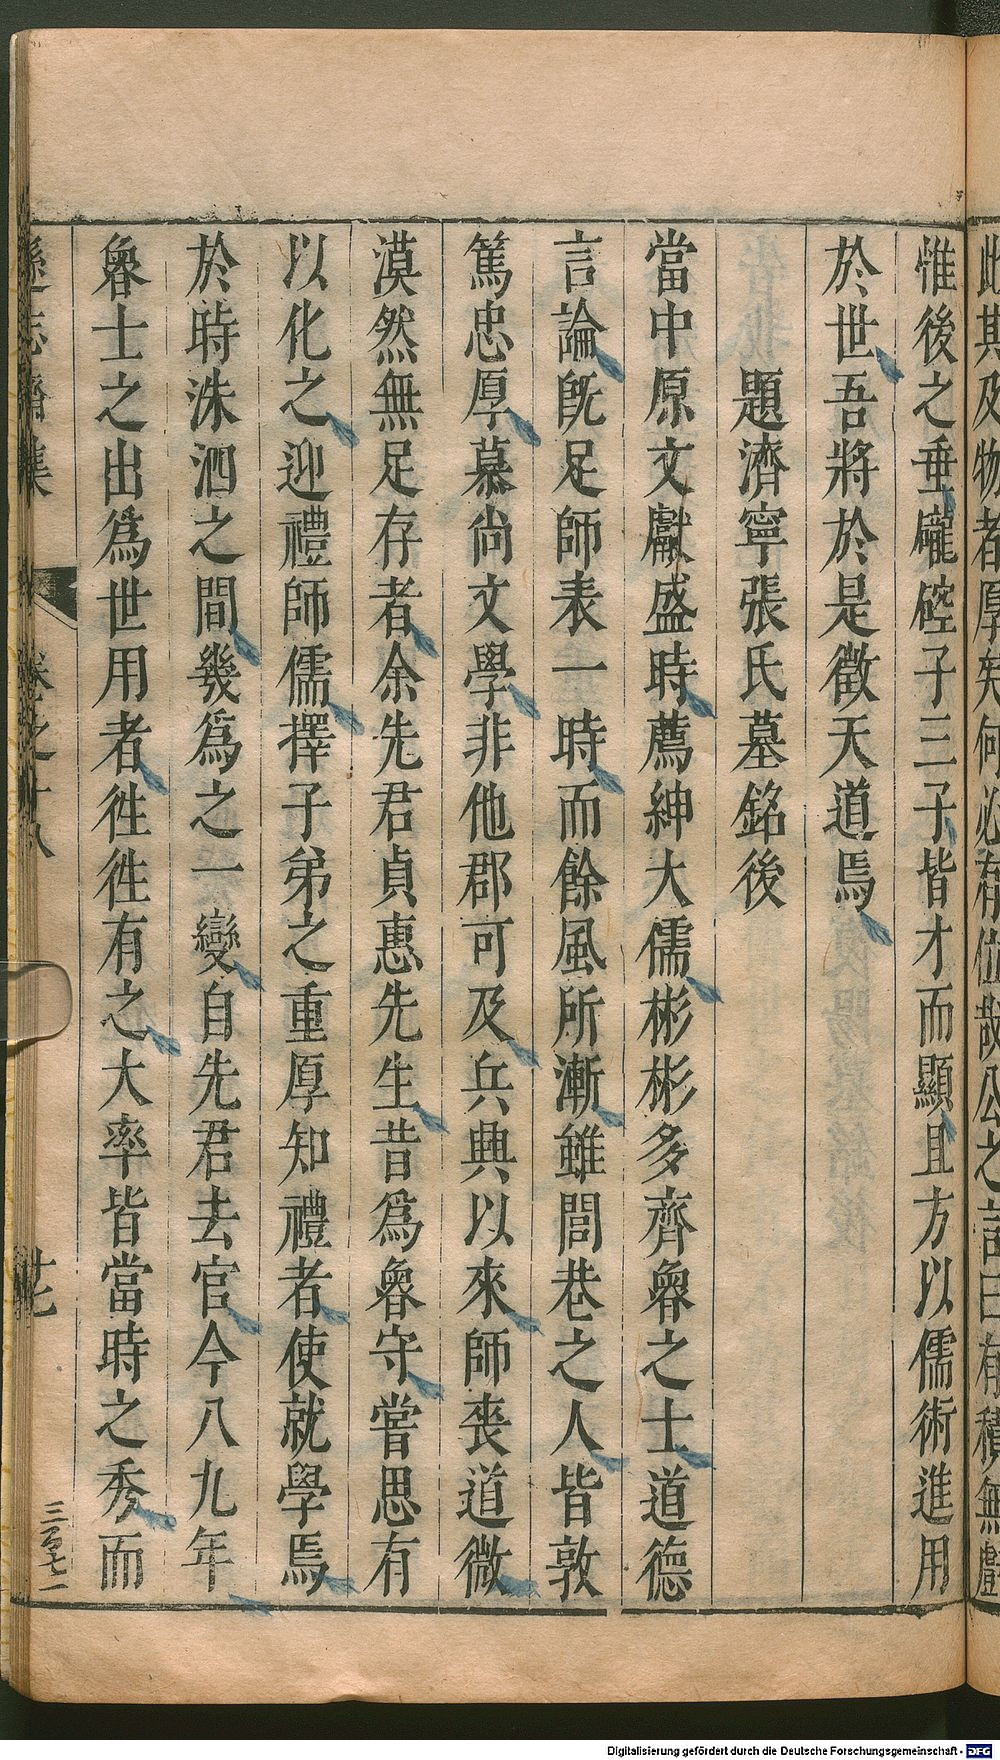 惟後之垂礲硿子三子皆才而顯且方以儒術進用
於世吾將於是徵天道焉
題濟寧張氏墓銘後
當中原文獻盛時薦紳大儒彬彬多齊魯之士道德
言論旣足師表一時而餘風所漸雖閭巷之人皆敦
篤忠厚慕尚文學非他郡可及兵興以來師喪道微
漠然無足存者余先君貞惠先生昔爲魯守嘗思有
以化之迎禮師儒擇子弟之重厚知禮者使就學焉
於時洙泗之間幾爲之一變自先君去官今八九年
魯士之出爲世用者徃徃有之大率皆當時之秀而
遜志齋集 卷之十八 廿七
三百七一
Digitalisierung gefördert durch die Deutsche Forschungsgemeinschaft - DFG